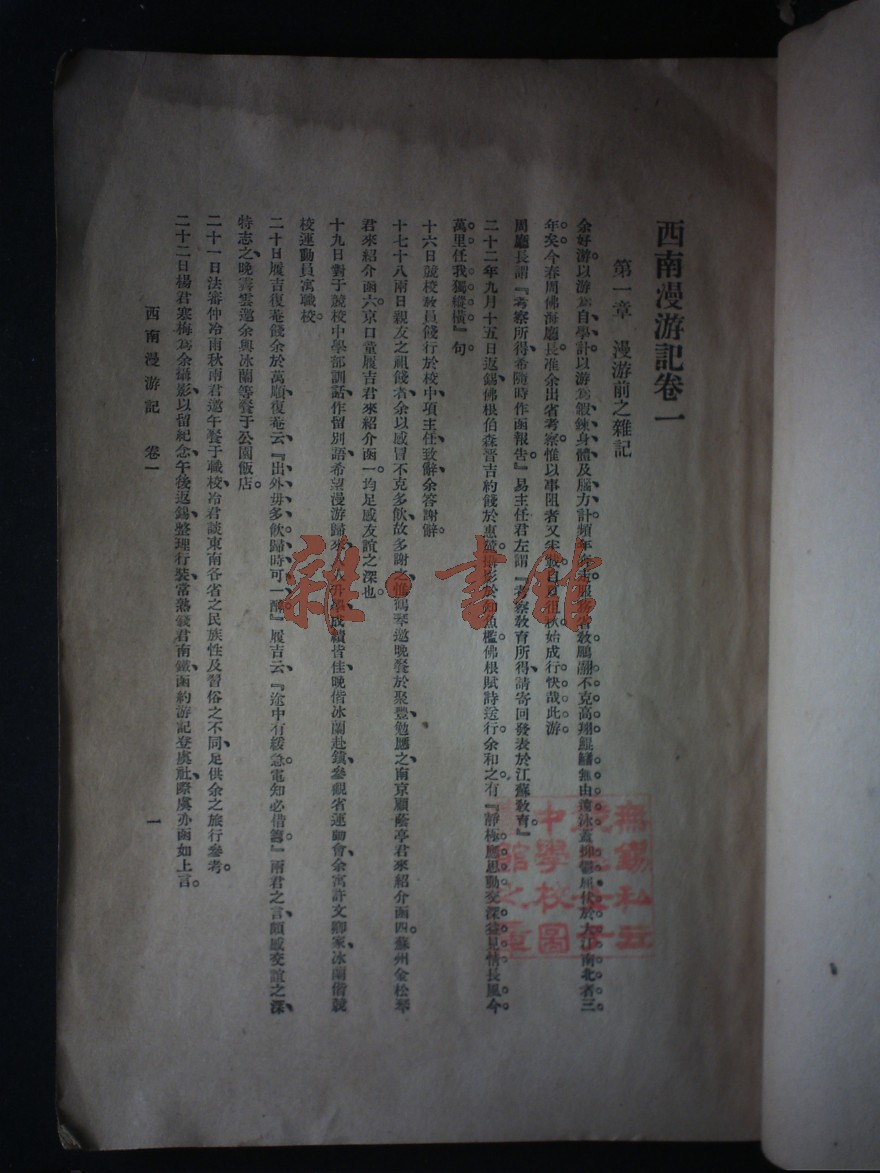 西南漫游記卷一
第一章 漫游前之雜記
余好游以游為自學計以游為鍛鍊身體及腦力計頻年奔走服務省教鵬翮不克高翔鯤鰭無由遠泳蓋抑鬱屈伏於大江南北者三
年矣今春周佛海廳長准余出省考察惟以事阻者又半載自夏徂秋始成行快哉此游
周廳長謂『考察所得希隨時作函報告』易主任君左謂『考察教育所得請寄回發表於江蘇教育』
二十二年九月十五日返錫佛根伯森晉吉約餞於惠旅攝影於知魚檻佛根賦詩送行余和之有『靜極應思動交深益見情長風今
萬里任我獨縱橫』句
十六日競校教員餞行於校中項主任致辭余答謝辭
十七十八兩日親友之祖餞者余以感冒不克多飲故多謝之惟鶴琴邀晚餐於聚豐勉應之南京顧蔭亭君來紹介函四蘇州金松岑
君來紹介函六京口童履吉君來紹介函一均足感友誼之深也
十九日對于競校中學部訓話作留別語希望漫游歸來人人升學成績皆佳晚偕冰蘭赴鎮參觀省運動會余寓許文卿家冰蘭偕競
校運動員寓職校
二十日履吉復菴餞余於萬順復菴云『出外毋多飲歸時可一醉』履吉云『途中有緩急電知必借籌』兩君之言頗感交誼之深
特志之晚壽雲邀余與冰蘭等餐于公園飯店
二十一日法審仲冷雨秋南君邀午餐于職校冷君談東南各省之民族性及習俗之不同足供余之旅行參考
二十二日楊君寒梅為余攝影以留紀念午後返錫整理行裝常熟龔君南鐵函約游記登虞社際虞亦函如上言
西南漫游記 卷一
一
無錫私立
競志女子
中學校圖
書館之章
雜·書館